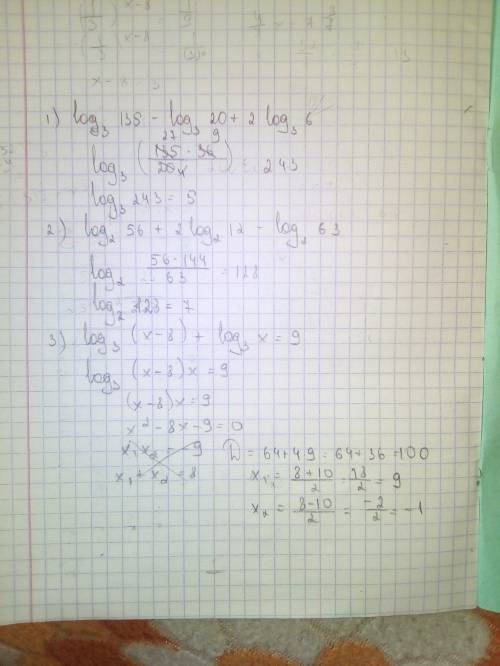 1) log₃ 135 - log₃ 20 + 2 log₃ 6
27 9
log₃ (135 · 36 / 20 4) = 243
log₃ 243 = 5
2) log₂ 56 + 2 log₂ 12 - log₂ 63
log₂ 56·144 / 63 = 128
log₂ 128 = 7
3) log₃ (x-8) + log₃ x = 9
log₃ (x-8) x = 9
(x-8) x = 9
x² - 8x - 9 = 0
x₁ x₂ = -9
x₁ + x₂ = 8
D = 64+49 = 64+36 = 100
x₁ = 8+10 / 2 = 18 / 2 = 9
x₂ = 8-10 / 2 = -2 / 2 = -1